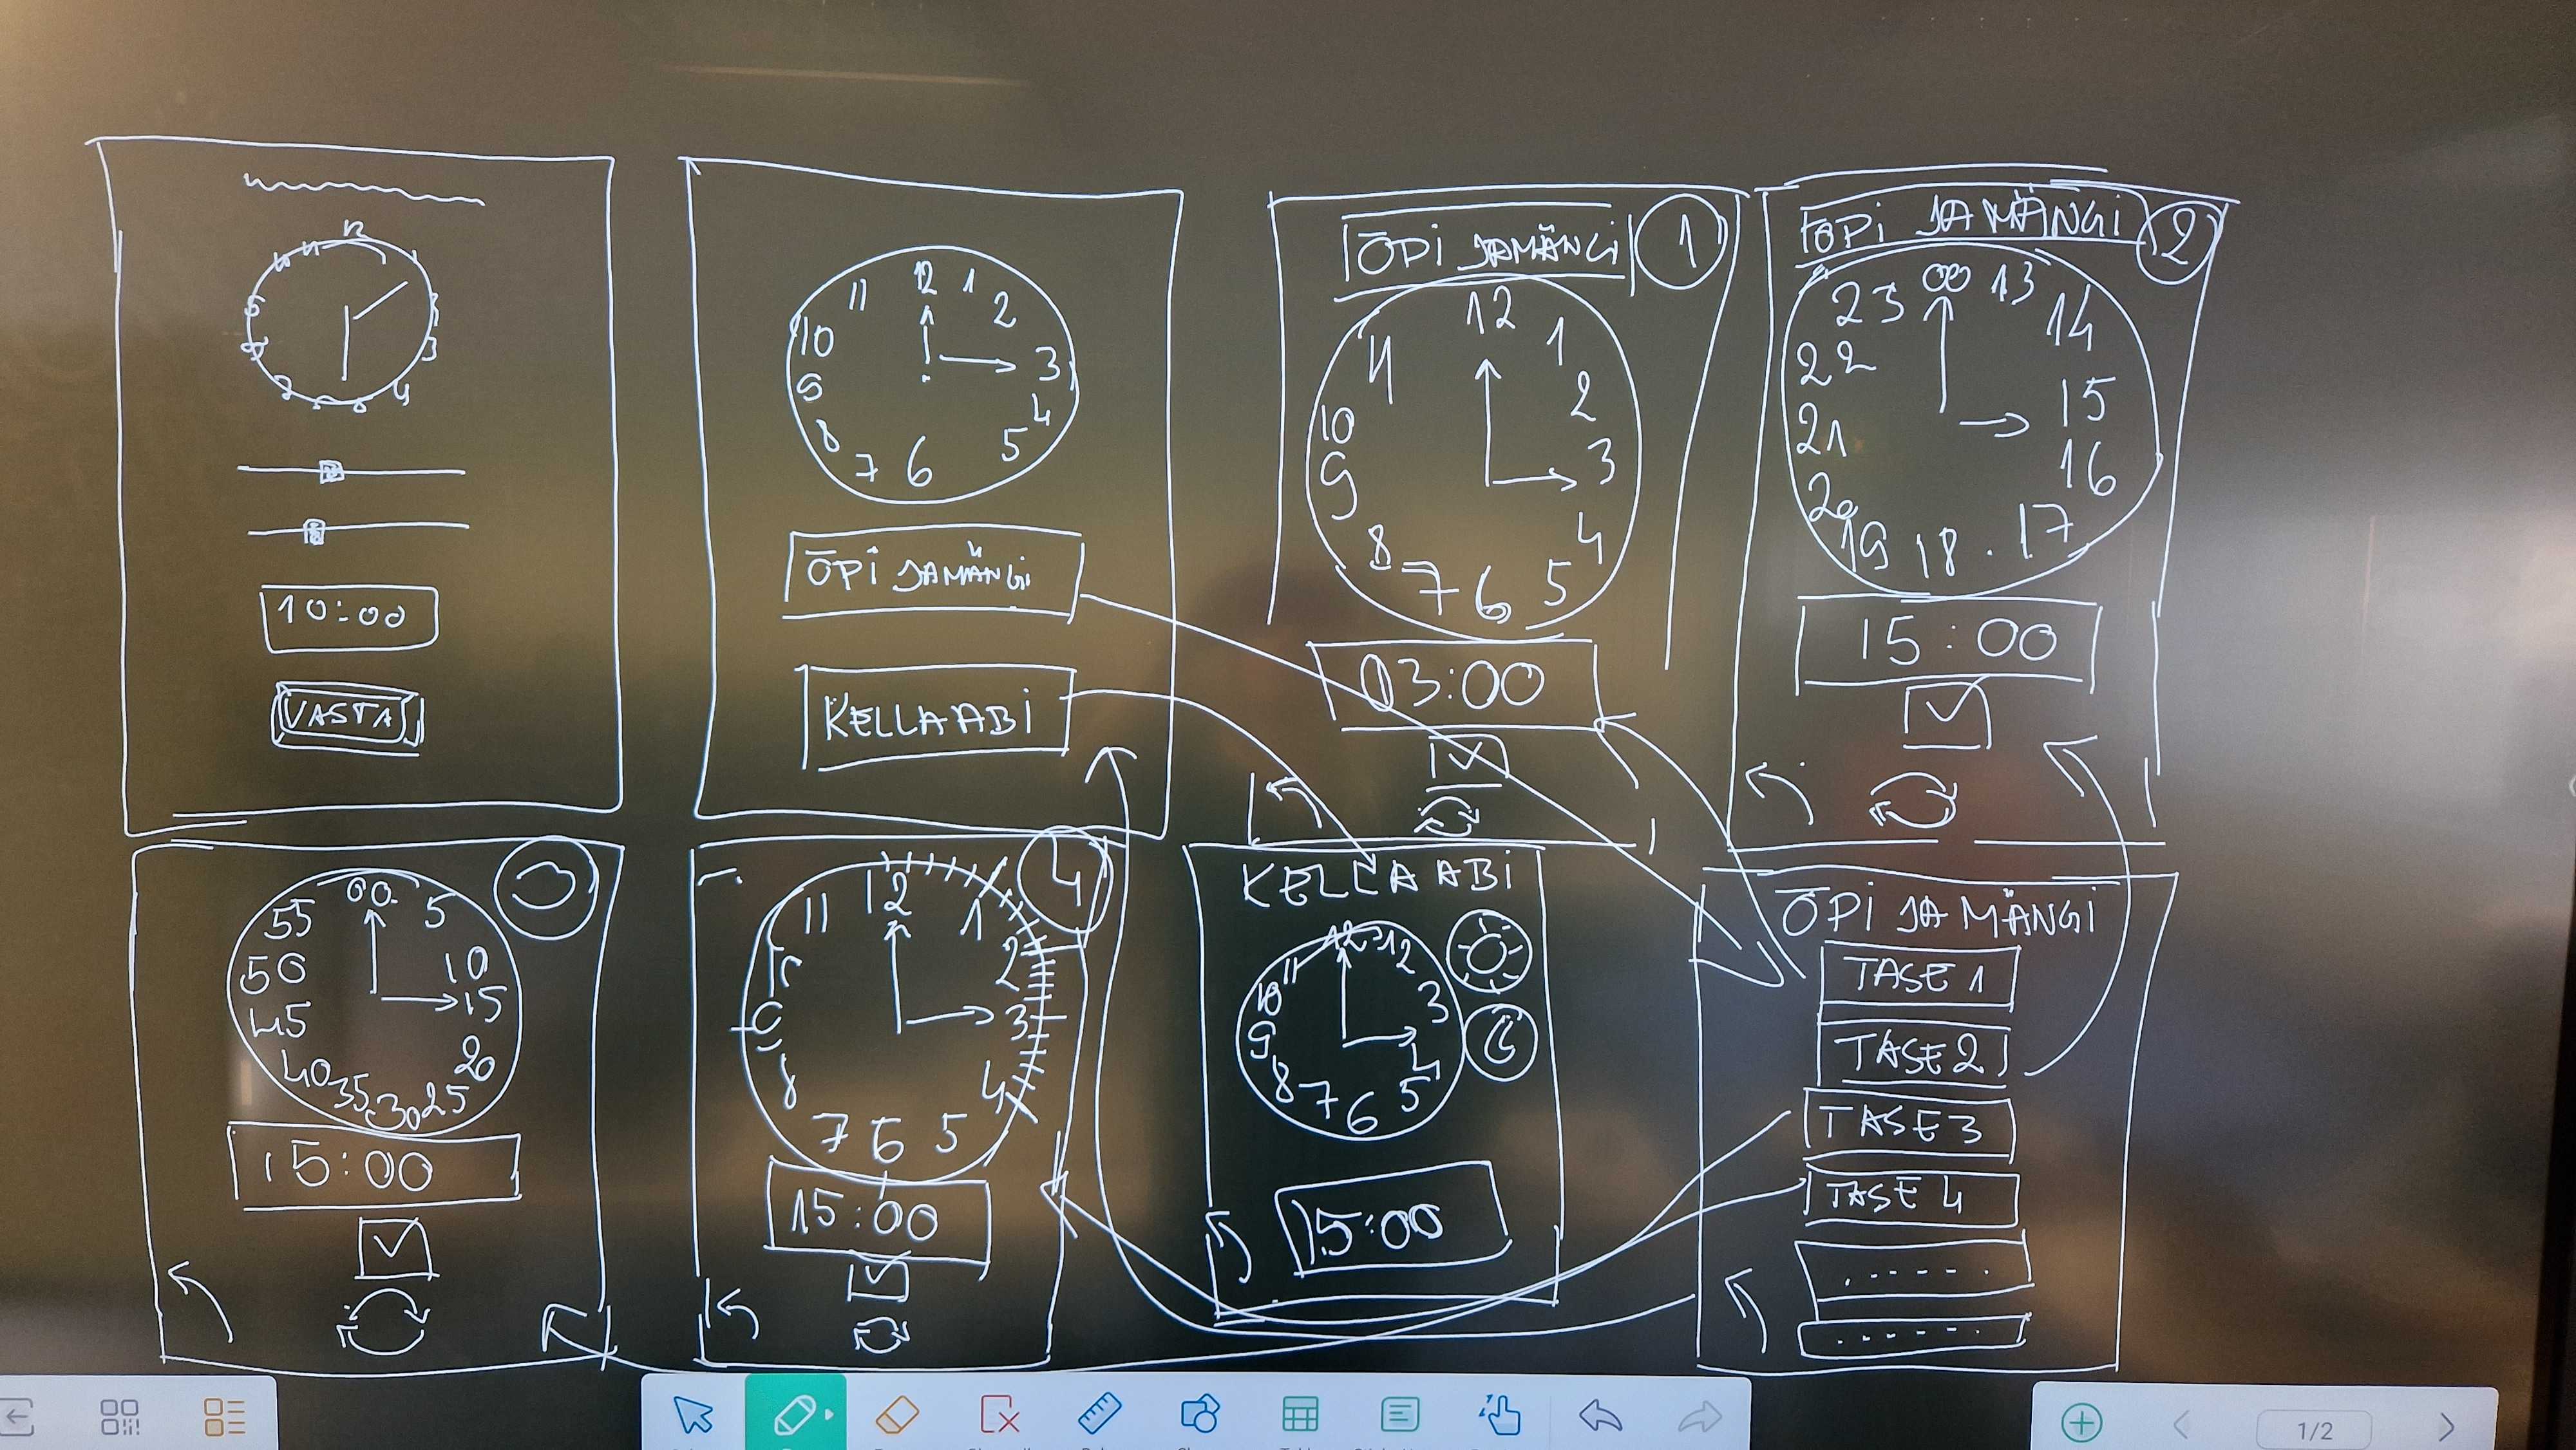 12
11
10
9
8
7
4
3
10:00
VASTA
12
1
2
3
4
5
6
7
8
9
10
11
ÕPI JA MÄNGI
KELLA ABI
ÕPI JA MÄNGI
1
12
1
2
3
4
5
6
7
8
9
10
11
03:00
ÕPI JA MÄNGI
2
00
13
14
15
16
17
18
19
20
21
22
23
15:00
3
00
5
10
15
20
25
30
35
40
45
50
55
15:00
4
12
1
2
3
4
5
6
7
8
11
15:00
KELLA ABI
12
1
2
3
4
5
6
7
8
9
10
11
15:00
ÕPI JA MÄNGI
TASE 1
TASE 2
TASE 3
TASE 4
. - - - - - .
. - - - - - .
1/2